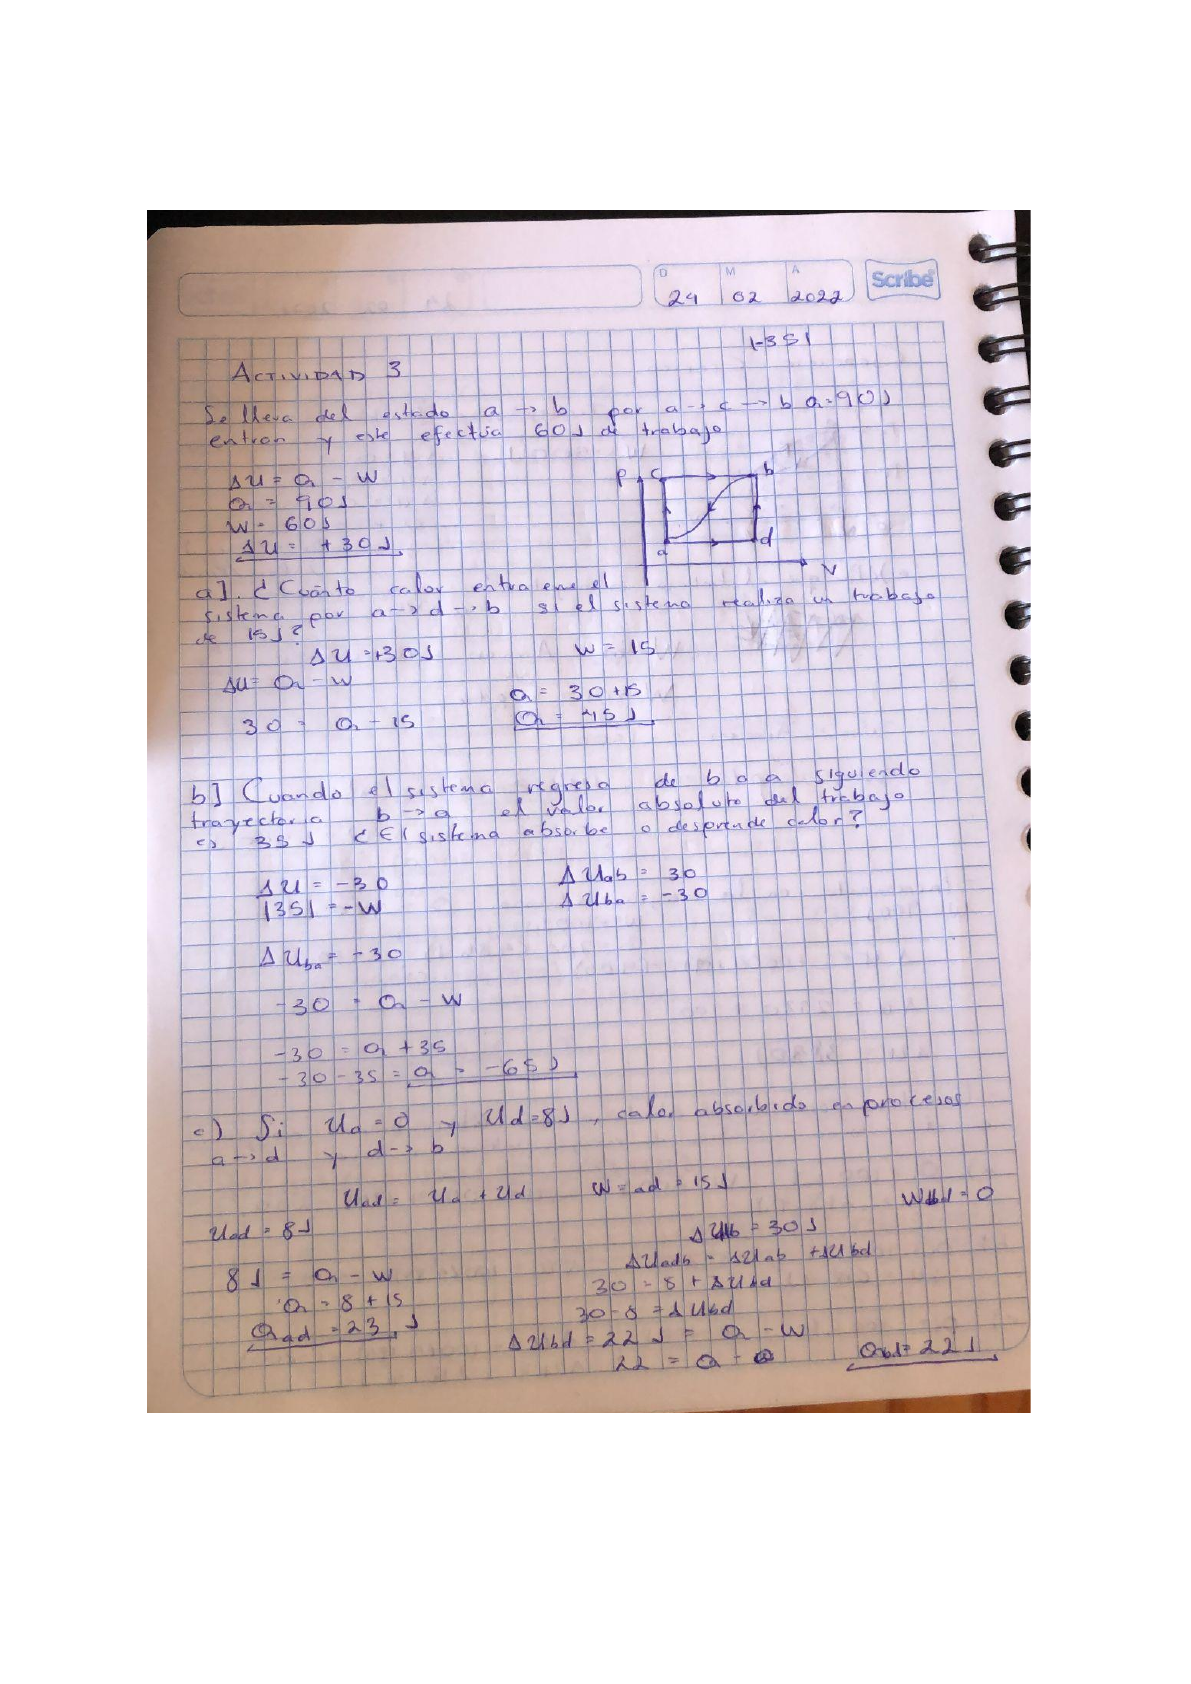 D M A
24 02 2022
Scribe
|-35|
ACTIVIDAD 3
Se lleva del estado a → b por a → c → b Q=90J
entran y este efectúa 60J de trabajo
ΔU = Q - W
Q = 90J
W = 60J
ΔU = +30J
P c b
a d
V
a]. ¿Cuánto calor entra en el
sistema por a→d→b si el sistema realiza un trabajo
de 15J?
ΔU =+30J W = 15
ΔU= Q - W
Q = 30+15
30 = Q - 15 Q = 45J
b] Cuando el sistema regresa de b a a siguiendo
trayectoria b → a el valor absoluto del trabajo
es 35J ¿El sistema absorbe o desprende calor?
ΔU = -30 ΔUab = 30
|35| = -W ΔUba = -30
ΔUba = -30
-30 = Q - W
-30 = Q + 35
-30 - 35 = Q = -65J
c) Si Ua = 0 y Ud=8J, calor absorbido en procesos
a→d y d→b
Uad = Ua + Ud W=ad = 15J Wbd = 0
Uad = 8J ΔUab = 30J
ΔUadb = ΔUab + ΔUbd
8J = Q - W 30 = 8 + ΔUbd
Q = 8 + 15 30 - 8 = ΔUbd
Qad = 23J ΔUbd = 22J = Q - W
22 = Q - 0 Qbd= 22J